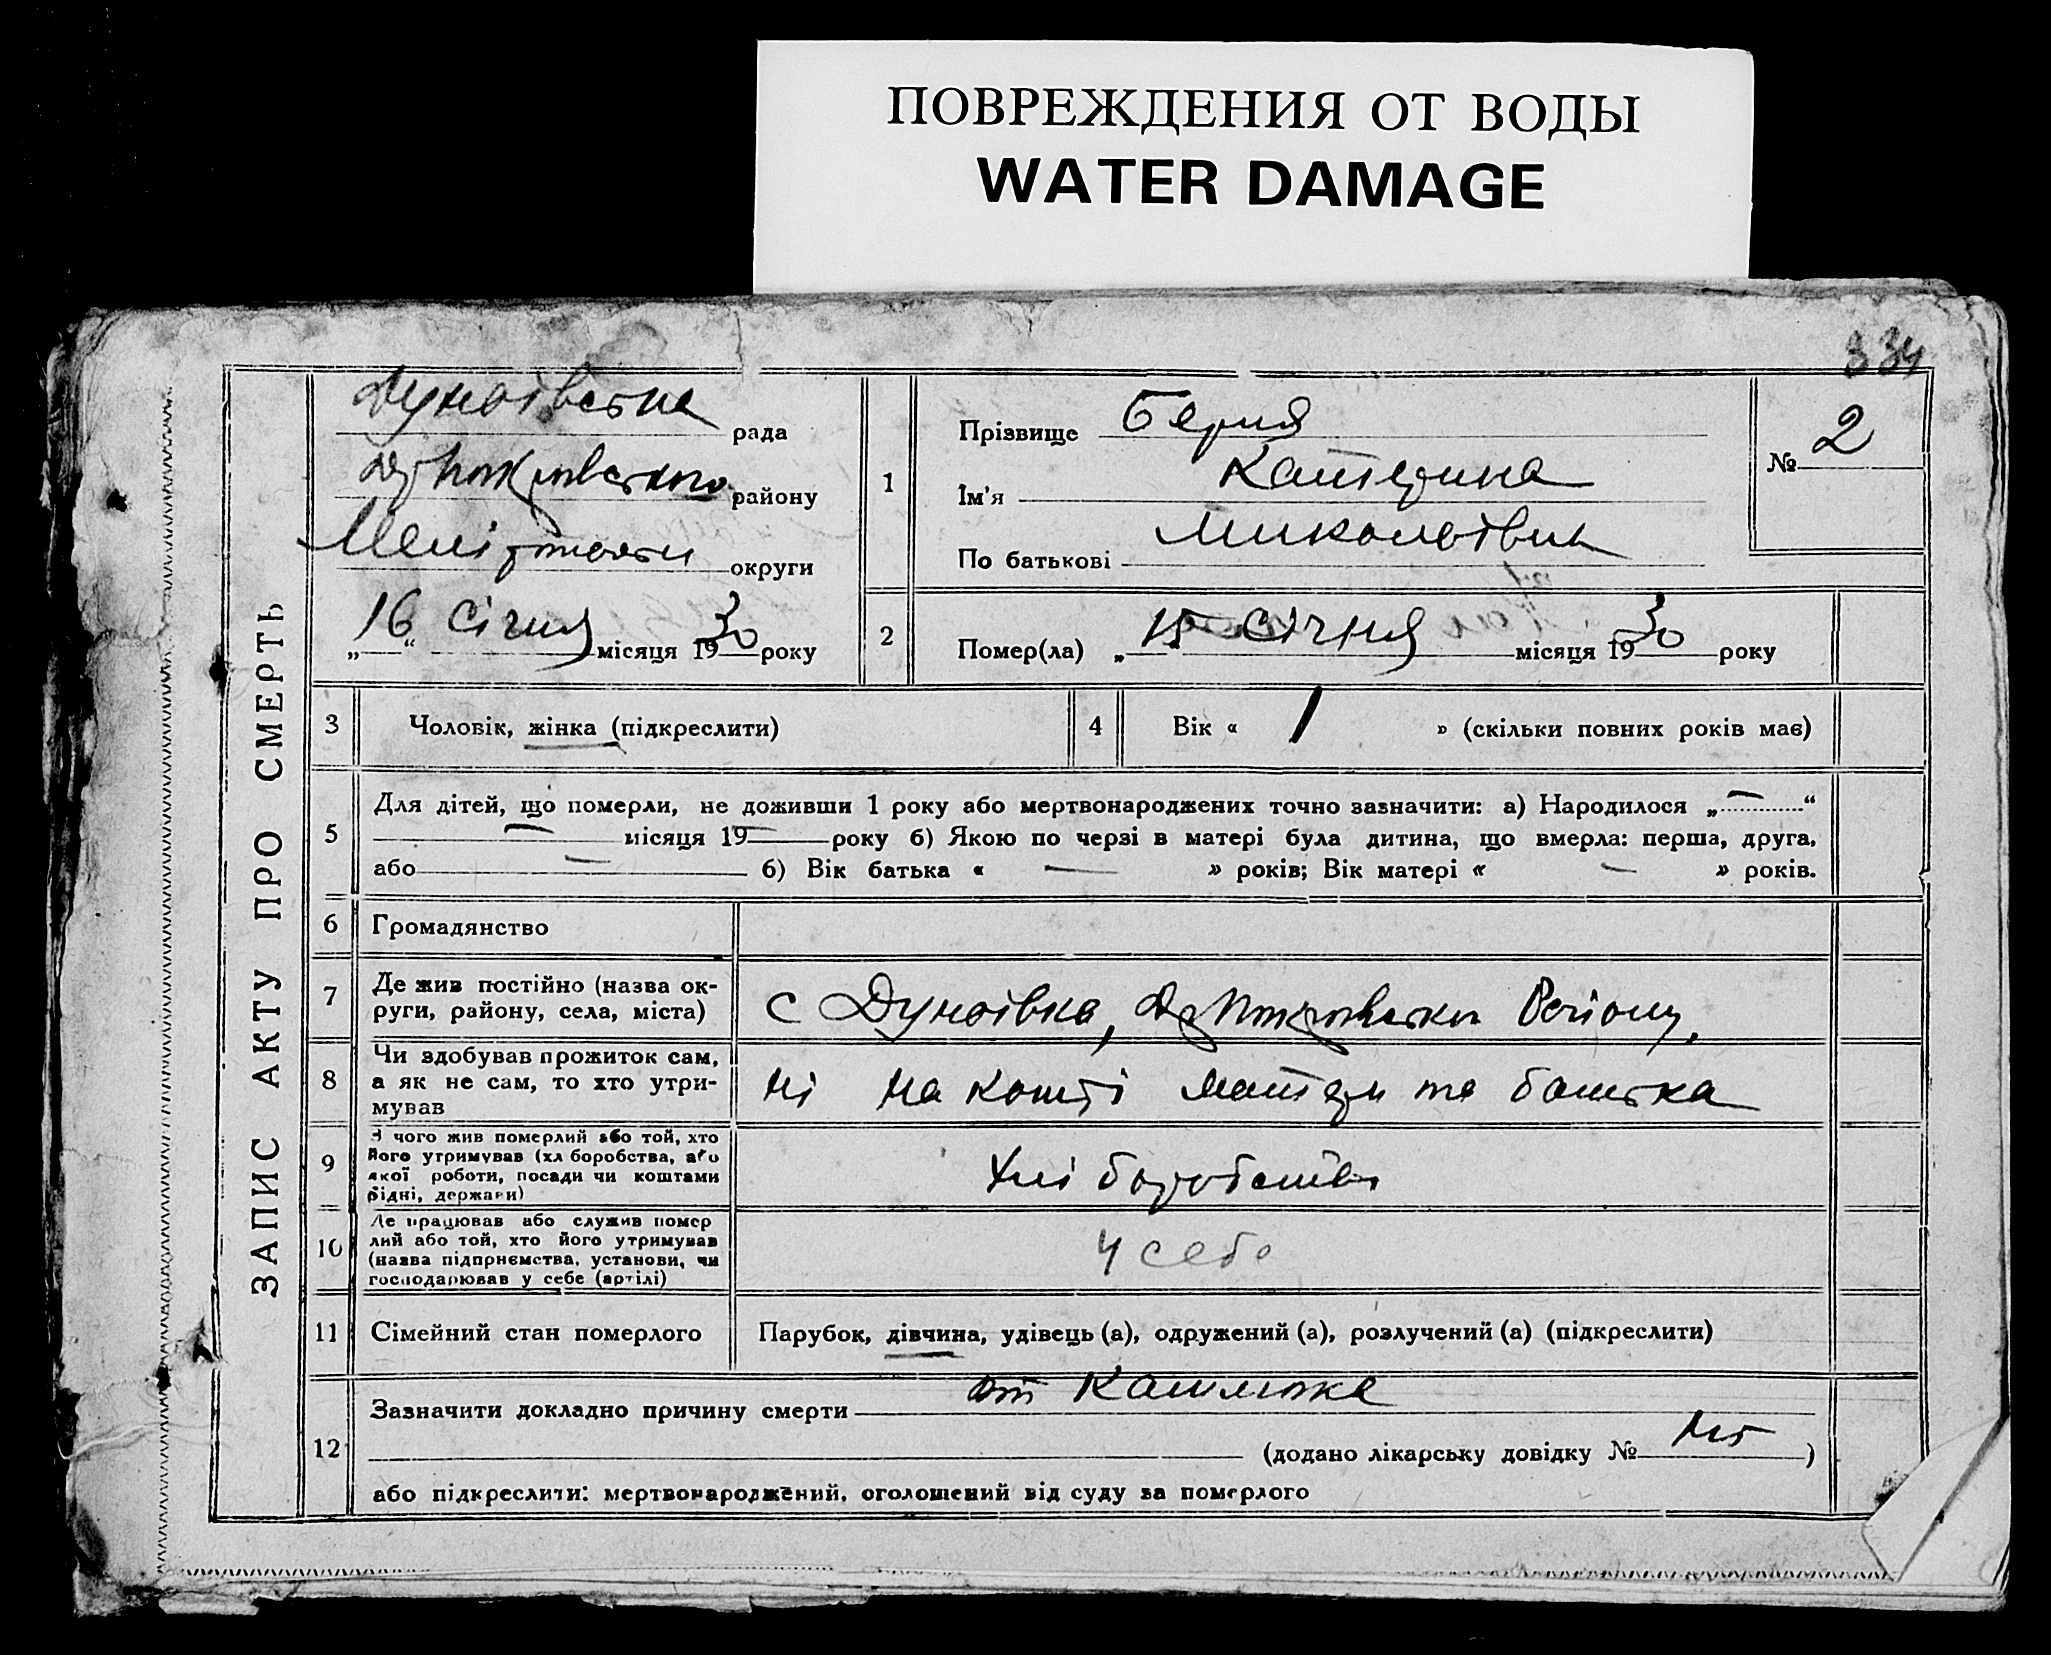 ПОВРЕЖДЕНИЯ ОТ ВОДЫ
WATER DAMAGE
334
ЗАПИС АКТУ ПРО СМЕРТЬ
Дунаївська рада
району
округи
„16“ січня місяця 1930 року
1
Прізвище Берия
Ім'я Катерина
По батькові Миколаївна
№ 2
2
Помер(ла) „15“ січня місяця 1930 року
3
Чоловік, жінка (підкреслити)
4
Вік « 1 » (скільки повних років має)
5
Для дітей, що померли, не доживши 1 року або мертвонароджених точно зазначити: а) Народилося „—“
— місяця 19— року б) Якою по черзі в матері була дитина, що вмерла: перша, друга,
або — б) Вік батька « — » років; Вік матері « — » років.
6
Громадянство
7
Де жив постійно (назва ок-
руги, району, села, міста)
с Дунаївка, Району.
8
Чи здобував прожиток сам,
а як не сам, то хто утри-
мував
ні на кошті матери та батька
9
З чого жив померлий або той, хто
його утримував (хліборобства, або
якої роботи, посади чи коштами
рідні, держави)
Хліборобства
10
Де працював або служив помер
лий або той, хто його утримував
(назва підприємства, установи, чи
господарював у себе (артілі)
У себе
11
Сімейний стан померлого
Парубок, дівчина, удівець (а), одружений (а), розлучений (а) (підкреслити)
12
Зазначити докладно причину смерти от Кашлюка
(додано лікарську довідку № )
або підкреслити: мертвонароджений, оголошений від суду за померлого